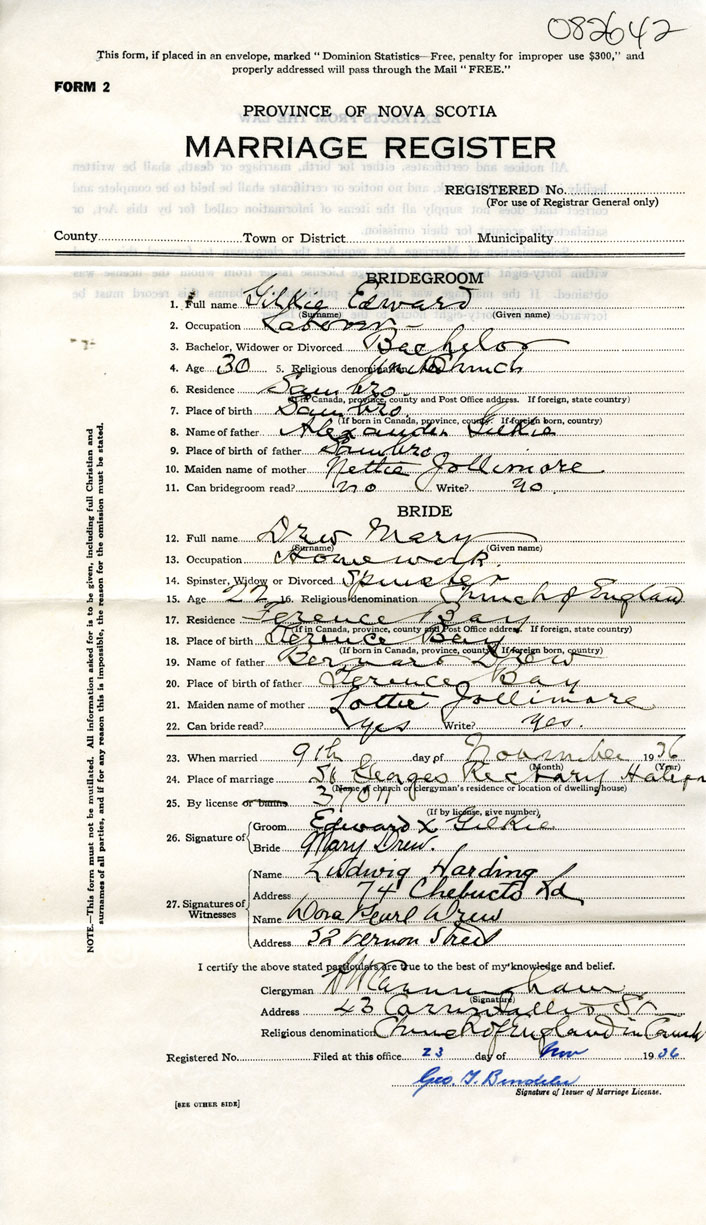 082642
This form, if placed in an envelope, marked "Dominion Statistics—Free, penalty for improper use $300," and
properly addressed will pass through the Mail "FREE."
FORM 2
PROVINCE OF NOVA SCOTIA
MARRIAGE REGISTER
REGISTERED No.
(For use of Registrar General only)
County Town or District Municipality
BRIDEGROOM
1. Full name Gilkie Edward
(Surname) (Given name)
2. Occupation Laborer
3. Bachelor, Widower or Divorced Bachelor
4. Age 30 5. Religious denomination Church
6. Residence Sambro
(If in Canada, province, county and Post Office address. If foreign, state country)
7. Place of birth Sambro
(If born in Canada, province, county. If foreign born, country)
8. Name of father Alexander Gilkie
9. Place of birth of father Sambro
10. Maiden name of mother Nettie Jollimore
11. Can bridegroom read? no Write? no
BRIDE
12. Full name Drew Mary
(Surname) (Given name)
13. Occupation Homework
14. Spinster, Widow or Divorced Spinster
15. Age 22 16. Religious denomination Church of England
17. Residence Terence Bay
(If in Canada, province, county and Post Office address. If foreign, state country)
18. Place of birth Terence Bay
(If born in Canada, province, county. If foreign born, country)
19. Name of father Bernard Drew
20. Place of birth of father Terence Bay
21. Maiden name of mother Lottie Jollimore
22. Can bride read? yes Write? yes.
23. When married 9th day of November 1936
(Month) (Year)
24. Place of marriage St Georges Rectory Halifax
(Name of church or clergyman's residence or location of dwelling house)
25. By license or banns
(If by license, give number)
26. Signature of
Groom Edward X Gilkie
Bride Mary Drew.
27. Signatures of Witnesses
Name Ludwig Harding
Address 74 Chebucto Rd
Name Dora Pearl Drew
Address 52 Vernon Street
I certify the above stated particulars are true to the best of my knowledge and belief.
Clergyman
(Signature)
Address 43 Cornwallis St
Religious denomination Church of England in Canada
Registered No. Filed at this office 23 day of Nov 1936
Geo. T.
Signature of Issuer of Marriage License.
[SEE OTHER SIDE]
NOTE.—This form must not be mutilated. All information asked for is to be given, including full Christian and
surnames of all parties, and if for any reason this is impossible, the reason for the omission must be stated.